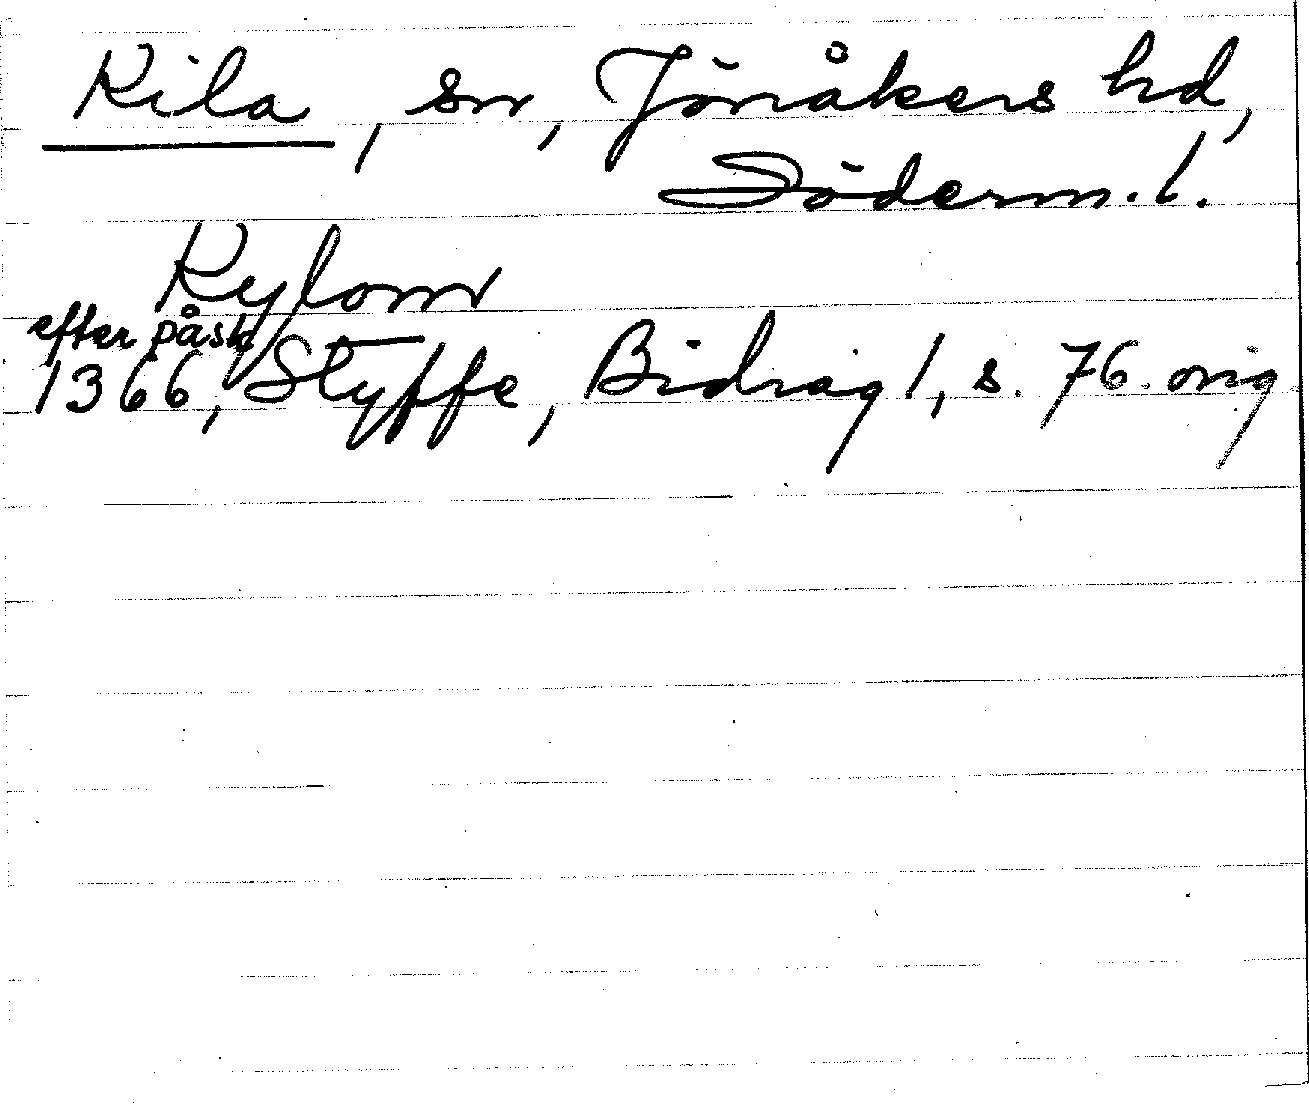 Kila, sn, Jönåkers hd,
Söderm. l.
Kylom
efter påsk
1366, Styffe, Bidrag 1, s. 76 orig.